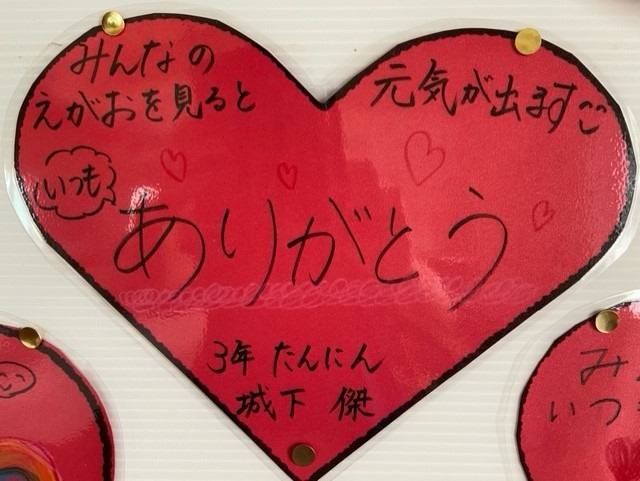 みんなの
えがおを見ると
元気が出ます
いつも
ありがとう
3年 たんにん
城下 傑
み
いつ